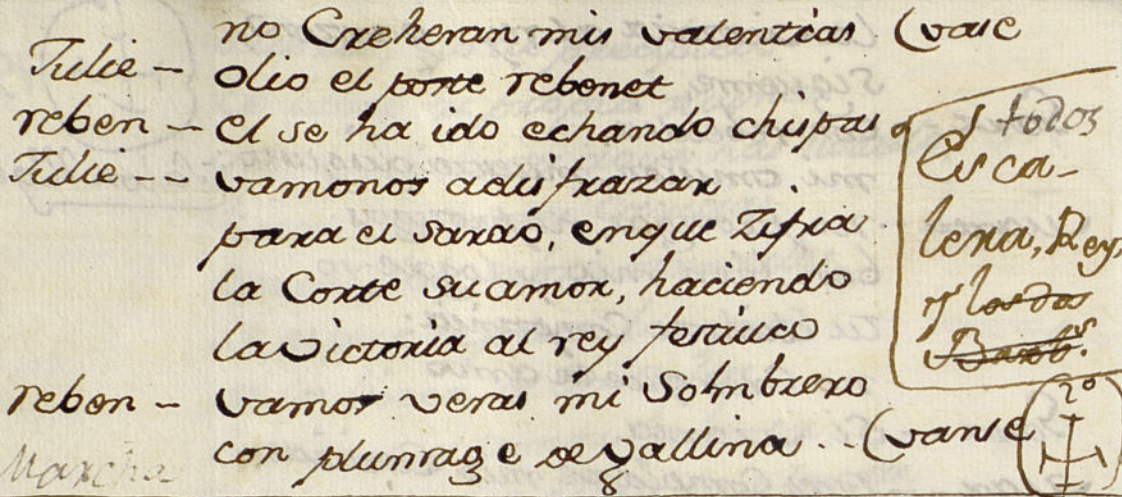 no Creheran mis valentias (vase
Julie - Olio el porte rebenet
reben - el se ha ido echando chispas
Julie -- vamonos adisfrazar .
para el sarao, enque Zifra
la Corte su amor, haciendo
la Victoria al rey festiva
reben - vamos veras mi Sombrero
con plumage de gallina .. (vanse
Marcha
todos
Esca-
lera, Rey,
y los dos
Barb.s
2º